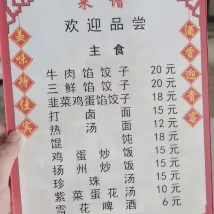 欢迎品尝
主食
牛肉馅饺子 20元
三鲜馅饺子 20元
韭菜鸡蛋馅饺子 18元
打卤面 15元
热汤面 12元
馄饨 15元
鸡蛋炒饭 15元
扬州炒饭 15元
珍珠汤 15元
紫菜蛋花汤 10元
雪花啤酒 6元
美味待佳宾
酒香迎贵客